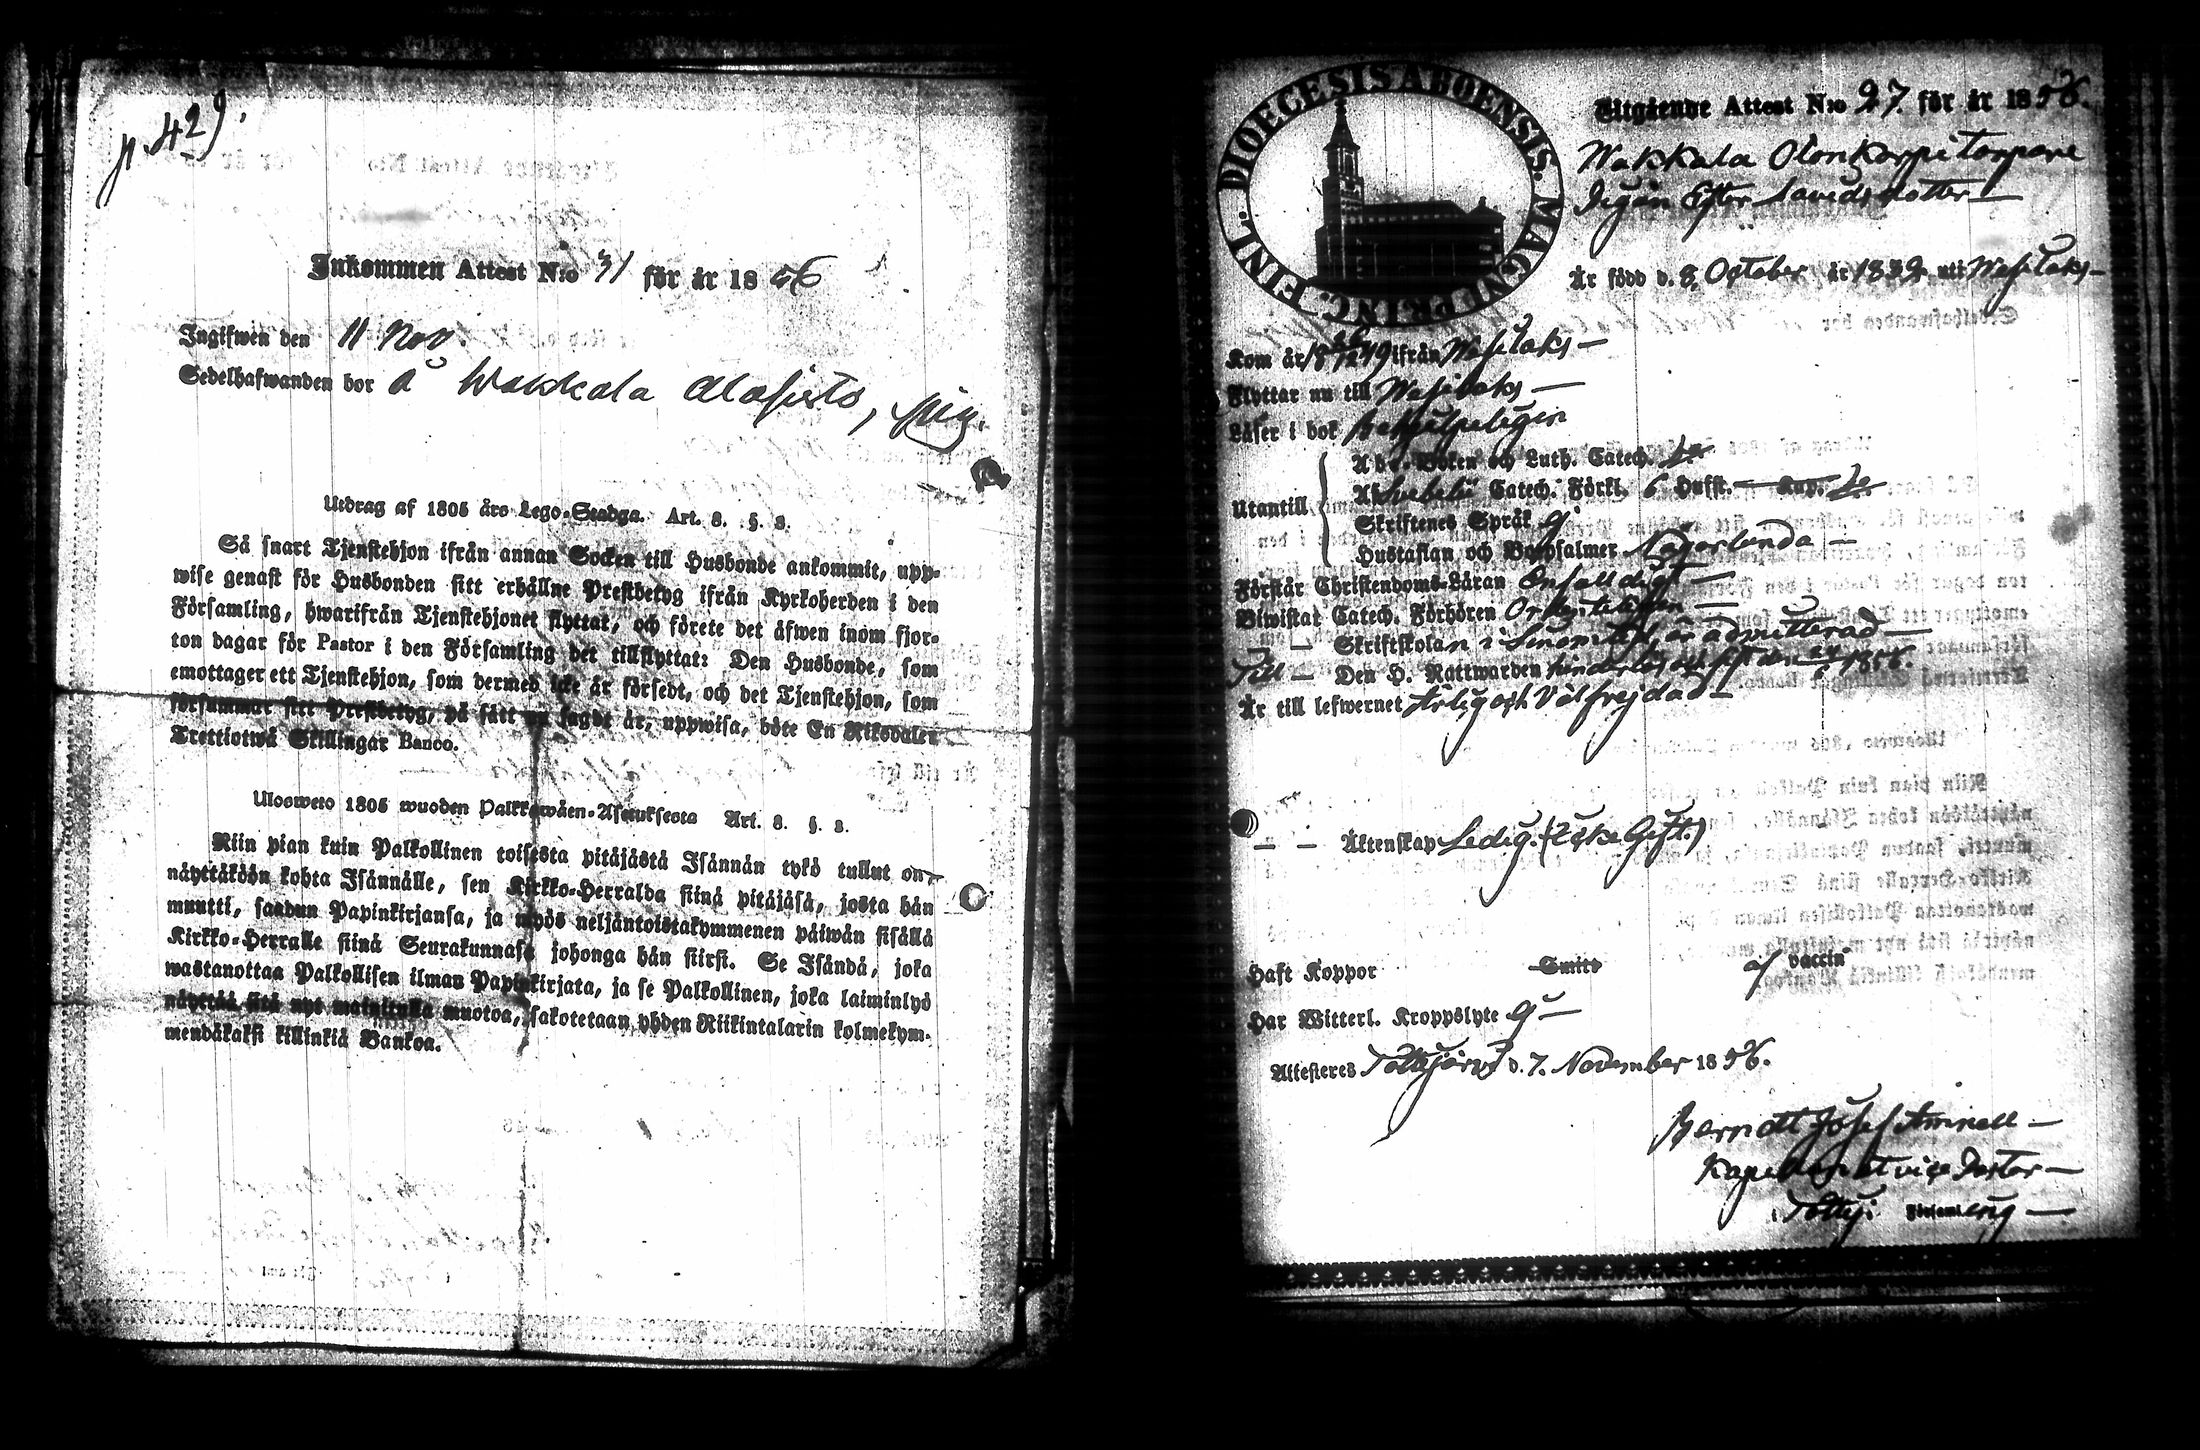 p. 429.
Inkommen Attest N:o 31 för år 1856
Ingifwen den 11 Nov.
Sedelhafwanden bor å Wakkala, pig.
Utdrag af 1805 års Lego-Stadga. Art. 8. §. 3.
Så snart Tjenstehjon ifrån annan Socken till Husbonde ankommit, upp-
wise genast för Husbonden sitt erhållne Prestbetyg ifrån Kyrkoherden i den
Församling, hwarifrån Tjenstehjonet flyttat, och förete det äfwen inom fjor-
ton dagar för Pastor i den Församling det tillflyttat: Den Husbonde, som
emottager ett Tjenstehjon, som dermed icke är försedt, och det Tjenstehjon, som
försummar sitt Prestbetyg, på sätt nu sagdt är, uppwisa, böte En Riksdaler
Trettiotwå Skillingar Banco.
Ulosweto 1805 wuoden Palkkawäen-Asetuksesta Art. 8. §. 3.
Niin pian kuin Palkollinen toisesta pitäjästä Isännän tykö tullut on,
näyttäköön kohta Isännälle, sen Kirkko-Herralda siinä pitäjäsä, josta hän
muutti, saadun Papinkirjansa, ja myös neljäntoistakymmenen päiwän sisällä
Kirkko-Herralle siinä Seurakunnasa johonga hän siirsi. Se Isändä, joka
wastanottaa Palkollisen ilman Papinkirjata, ja se Palkollinen, joka laiminlyö
näyttää sitä nyt mainitulla muotoa, sakotetaan yhden Riikintalarin kolmekym-
mendäkaksi killinkiä Bankoa.
FINL. DIOECESIS ABOENSIS. MAGNI PRINC.
Utgående Attest N:o 27. för år 1856.
Wakkala Olonkorpi torpare
Pigan Ester Davidsdotter
Är född d. 8. October år 1832 uti Wesilaks
Kom år 18 49 ifrån Wesilaks
Flyttar nu till Wesilaks
Läser i bok
Utantill
Abc-Boken och Luth. Catech.
Af Svebelii Catech. Förkl. 6 Hufst. Kap.
Skriftenes Språk ej
Hustaflan och Botpsalmer Någorlunda
Förstår Christendoms-Läran Enfalldigt
Biwistat Catech. Förhören Ordenteligen
Skriftskolan i sinom tid, är admitterad
Till Den H. Nattwarden hinderlös sist den 1856.
Är till lefwernet Ärlig och Välfrejdad
Äktenskap Ledig. (Icke Gift.)
Haft Koppor Smitt af vaccin
Har Witterl. Kroppslyte ej
Attesteres Tottijärvi d. 7. November 1856.
Berndt Josef Aminell
Kapellan et vice Pastor
i Tottij: Församl.ing